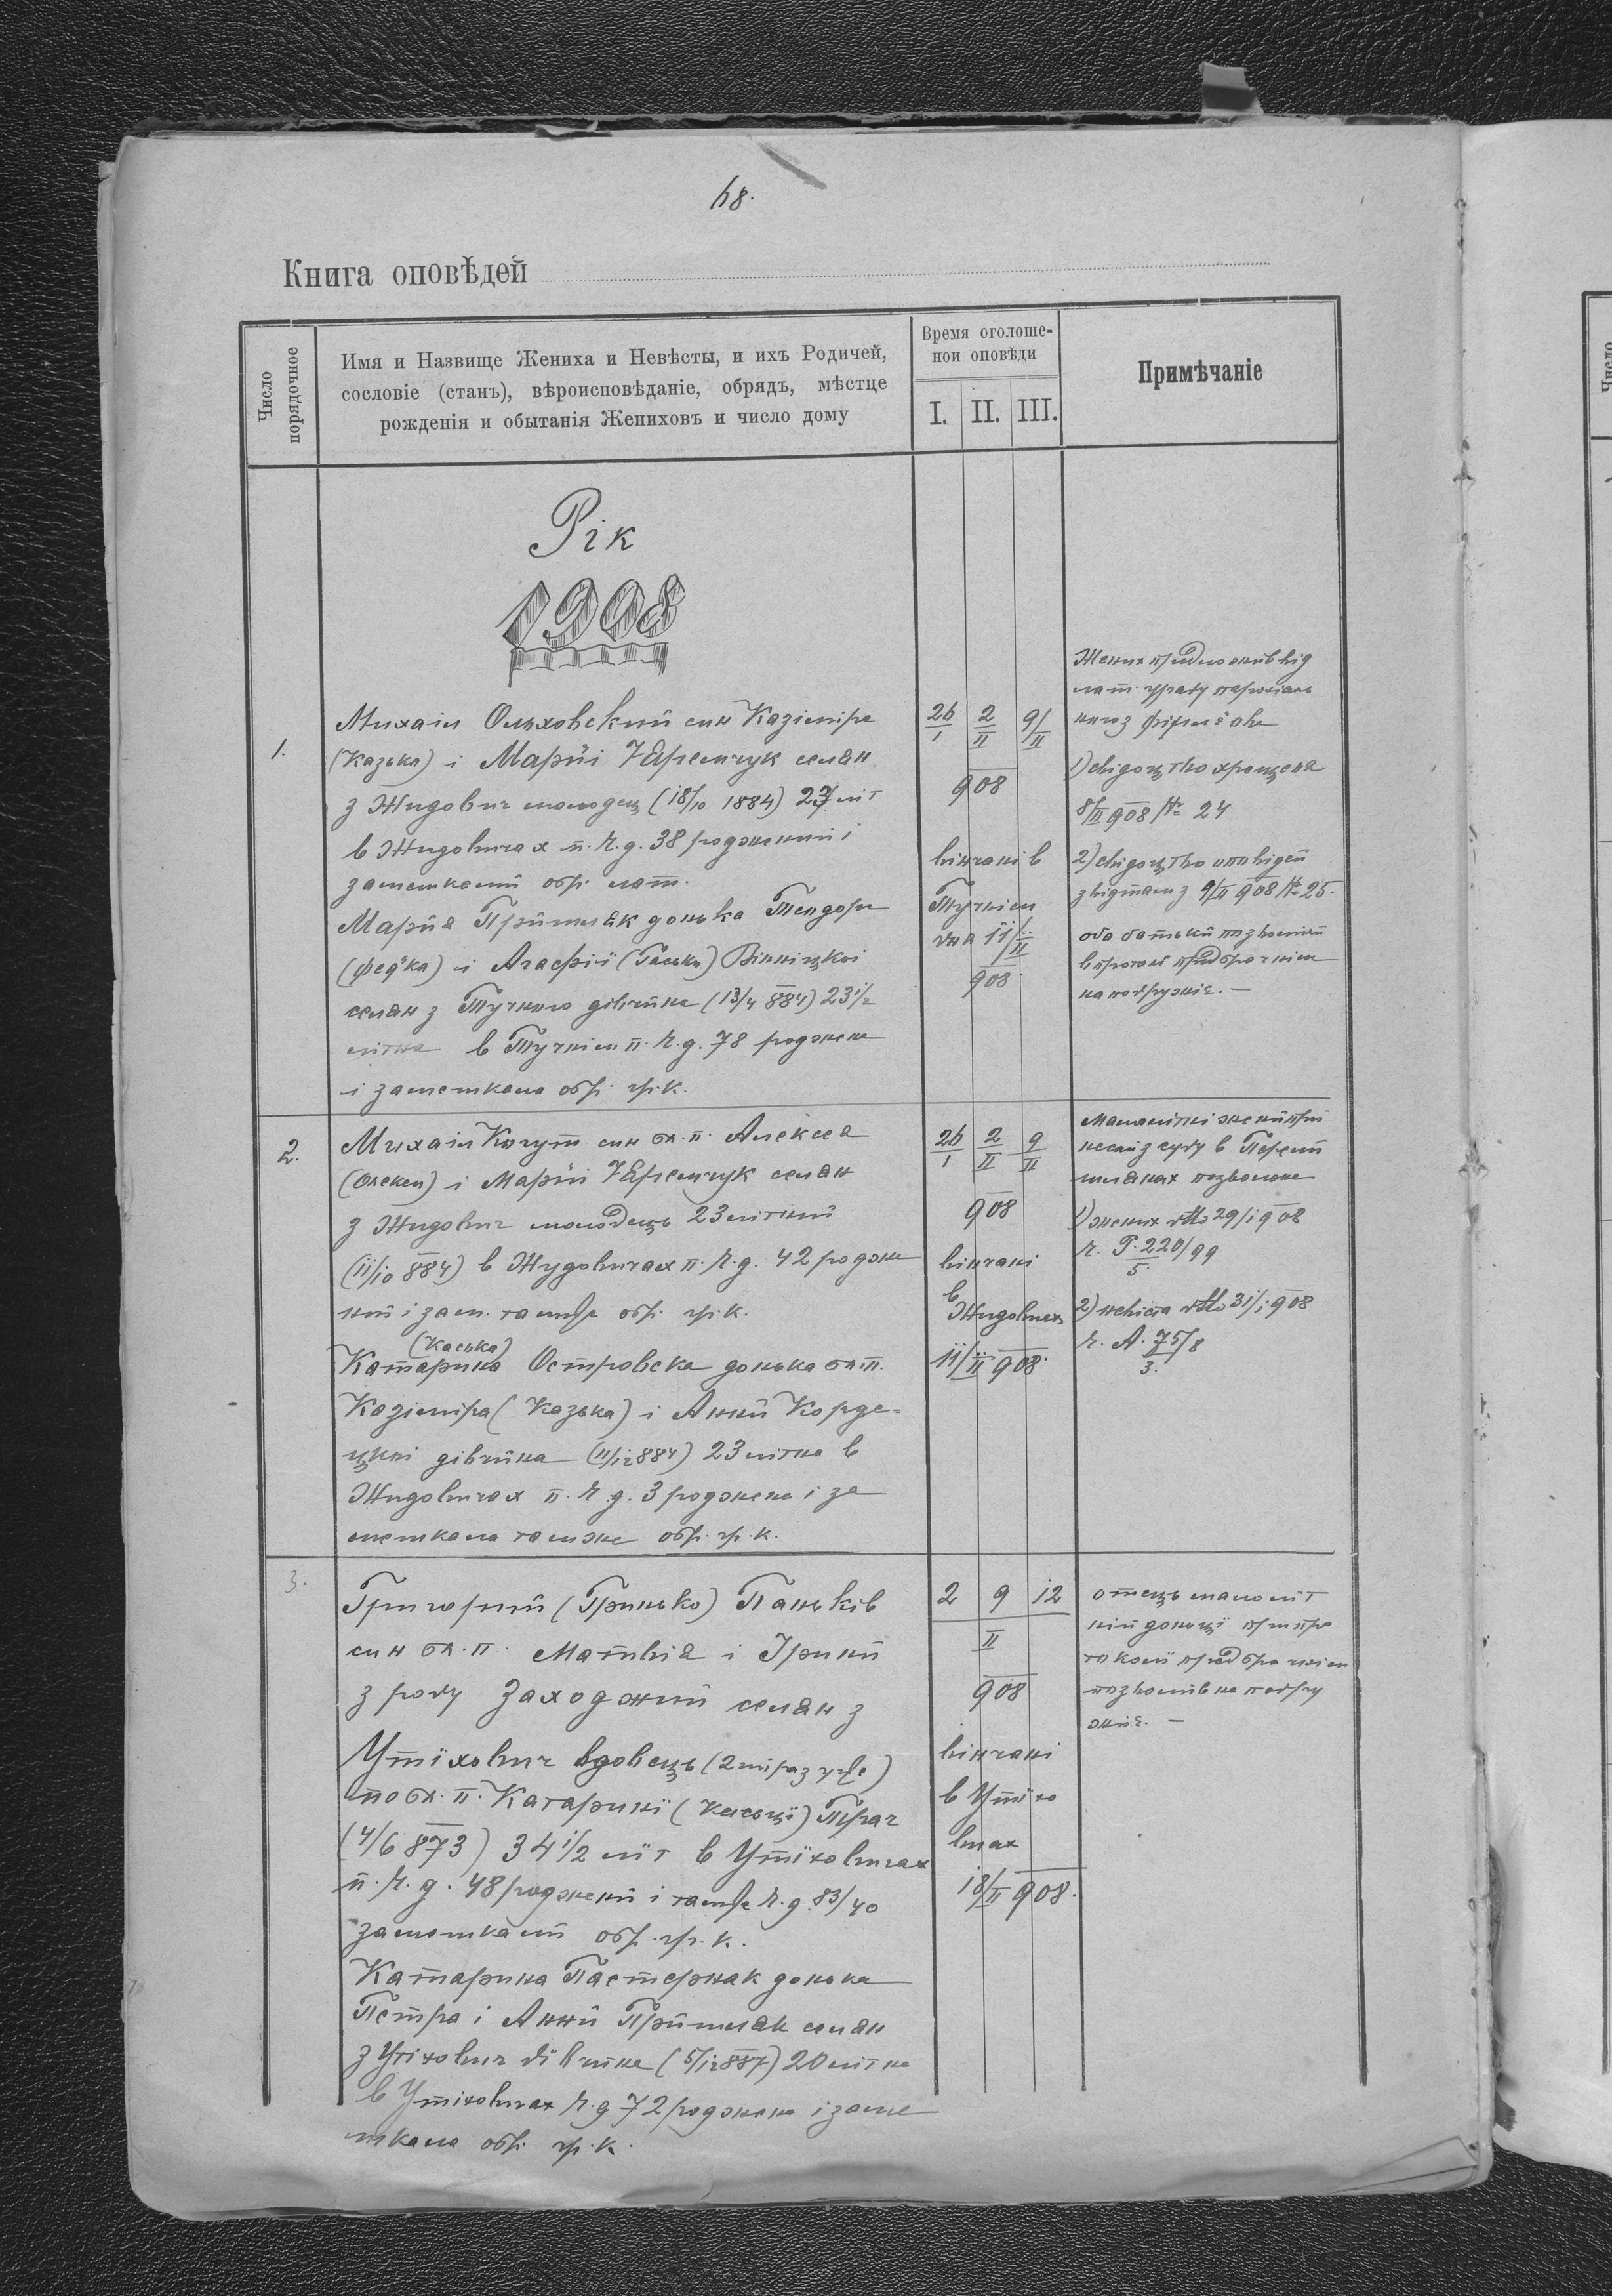 48.
Книга оповѣдей
Число порядочное
Имя и Назвище Жениха и Невѣсты, и ихъ Родичей,
сословіе (станъ), вѣроисповѣданіе, обрядъ, мѣстце
рожденія и обытанія Жениховъ и число дому
Время оголоше-
нои оповѣди
I. II. III.
Примѣчаніе
Рік
1908
1.
Михаіл Ольховский син Казіміра
(Казька) і Марїї Яремчук селян
з Жидович молодец (18/10 1884) 23 літ
в Жидовичах п. ч. д. 38 роджений і
замешкалий обр. лат.
Марія Пришляк донька Теодора
(Федька) і Агафії (Гаськи) Вінніцкої
селян з Тучного дівчина (13/4 884) 23 1/2
літна в Тучнім п. ч. д. 78 роджена
і замешкала обр. гр. к.
26/I 2/II 9/II
908
вінчані в
Тучнім
дня 11/II
908
Жених предложив від
лат. уряду парохіаль
ного з
1) свідоцтво хрещеня
8/II 908 № 24
2) свідоцтво оповідей
з відтам з 9/II 908 № 25.
оба батьки позволили
в проток. предбрачнім
на подружіє. —
2.
Михаіл Когут син бл. п. Алексея
(Олекси) і Марїї Яремчук селян
з Жидович молодець 23 літний
(11/10 884) в Жидовичах п. ч. д. 42 родже
ний і зам. тамже обр. гр. к.
(Каська)
Катарина Островска донька бл. п.
Казіміра (Казька) і Анни Корде-
цкої дівчина (11/12 884) 23 літна в
Жидовичах п. ч. д. 3 роджена і за
мешкала тамже обр. гр. к.
26/I 2/II 9/II
908
вінчані
в
Жидовичах
11/II 908.
Малолітні жени при
несли з суду в Переми
шлянах позволене
1) жених dtto 29/I 908
ч. P. 220/99
5.
2) невіста dtto 31/I 908
ч. A. 75/8
3.
3.
Григорий (Гринько) Паньків
син бл. п. Матвія і Ірини
з роду Заходжий селян з
Утїхович вдовець (2 раз уже)
по бл. п. Катаринї (Каськцї) Ткач
(4/6 873) 34 1/2 лїт в Утїховичах
п. ч. д. 48 роджений і тамже ч. д. 83/40
замешкалий обр. гр. к.
Катарина Пастернак донька
Петра і Анни Пришляк селян
з Утїхович дївчина (5/12 887) 20 літна
в Утїховичах ч. д 72 роджена і заме
шкала обр. гр. к.
2 9 12
II
908
вінчані
в Утїхо
вичах
18/II 908.
отець малоліт
ній доньцї при про
токолї предбрачнім
позволив на подру
жіє. —
Число